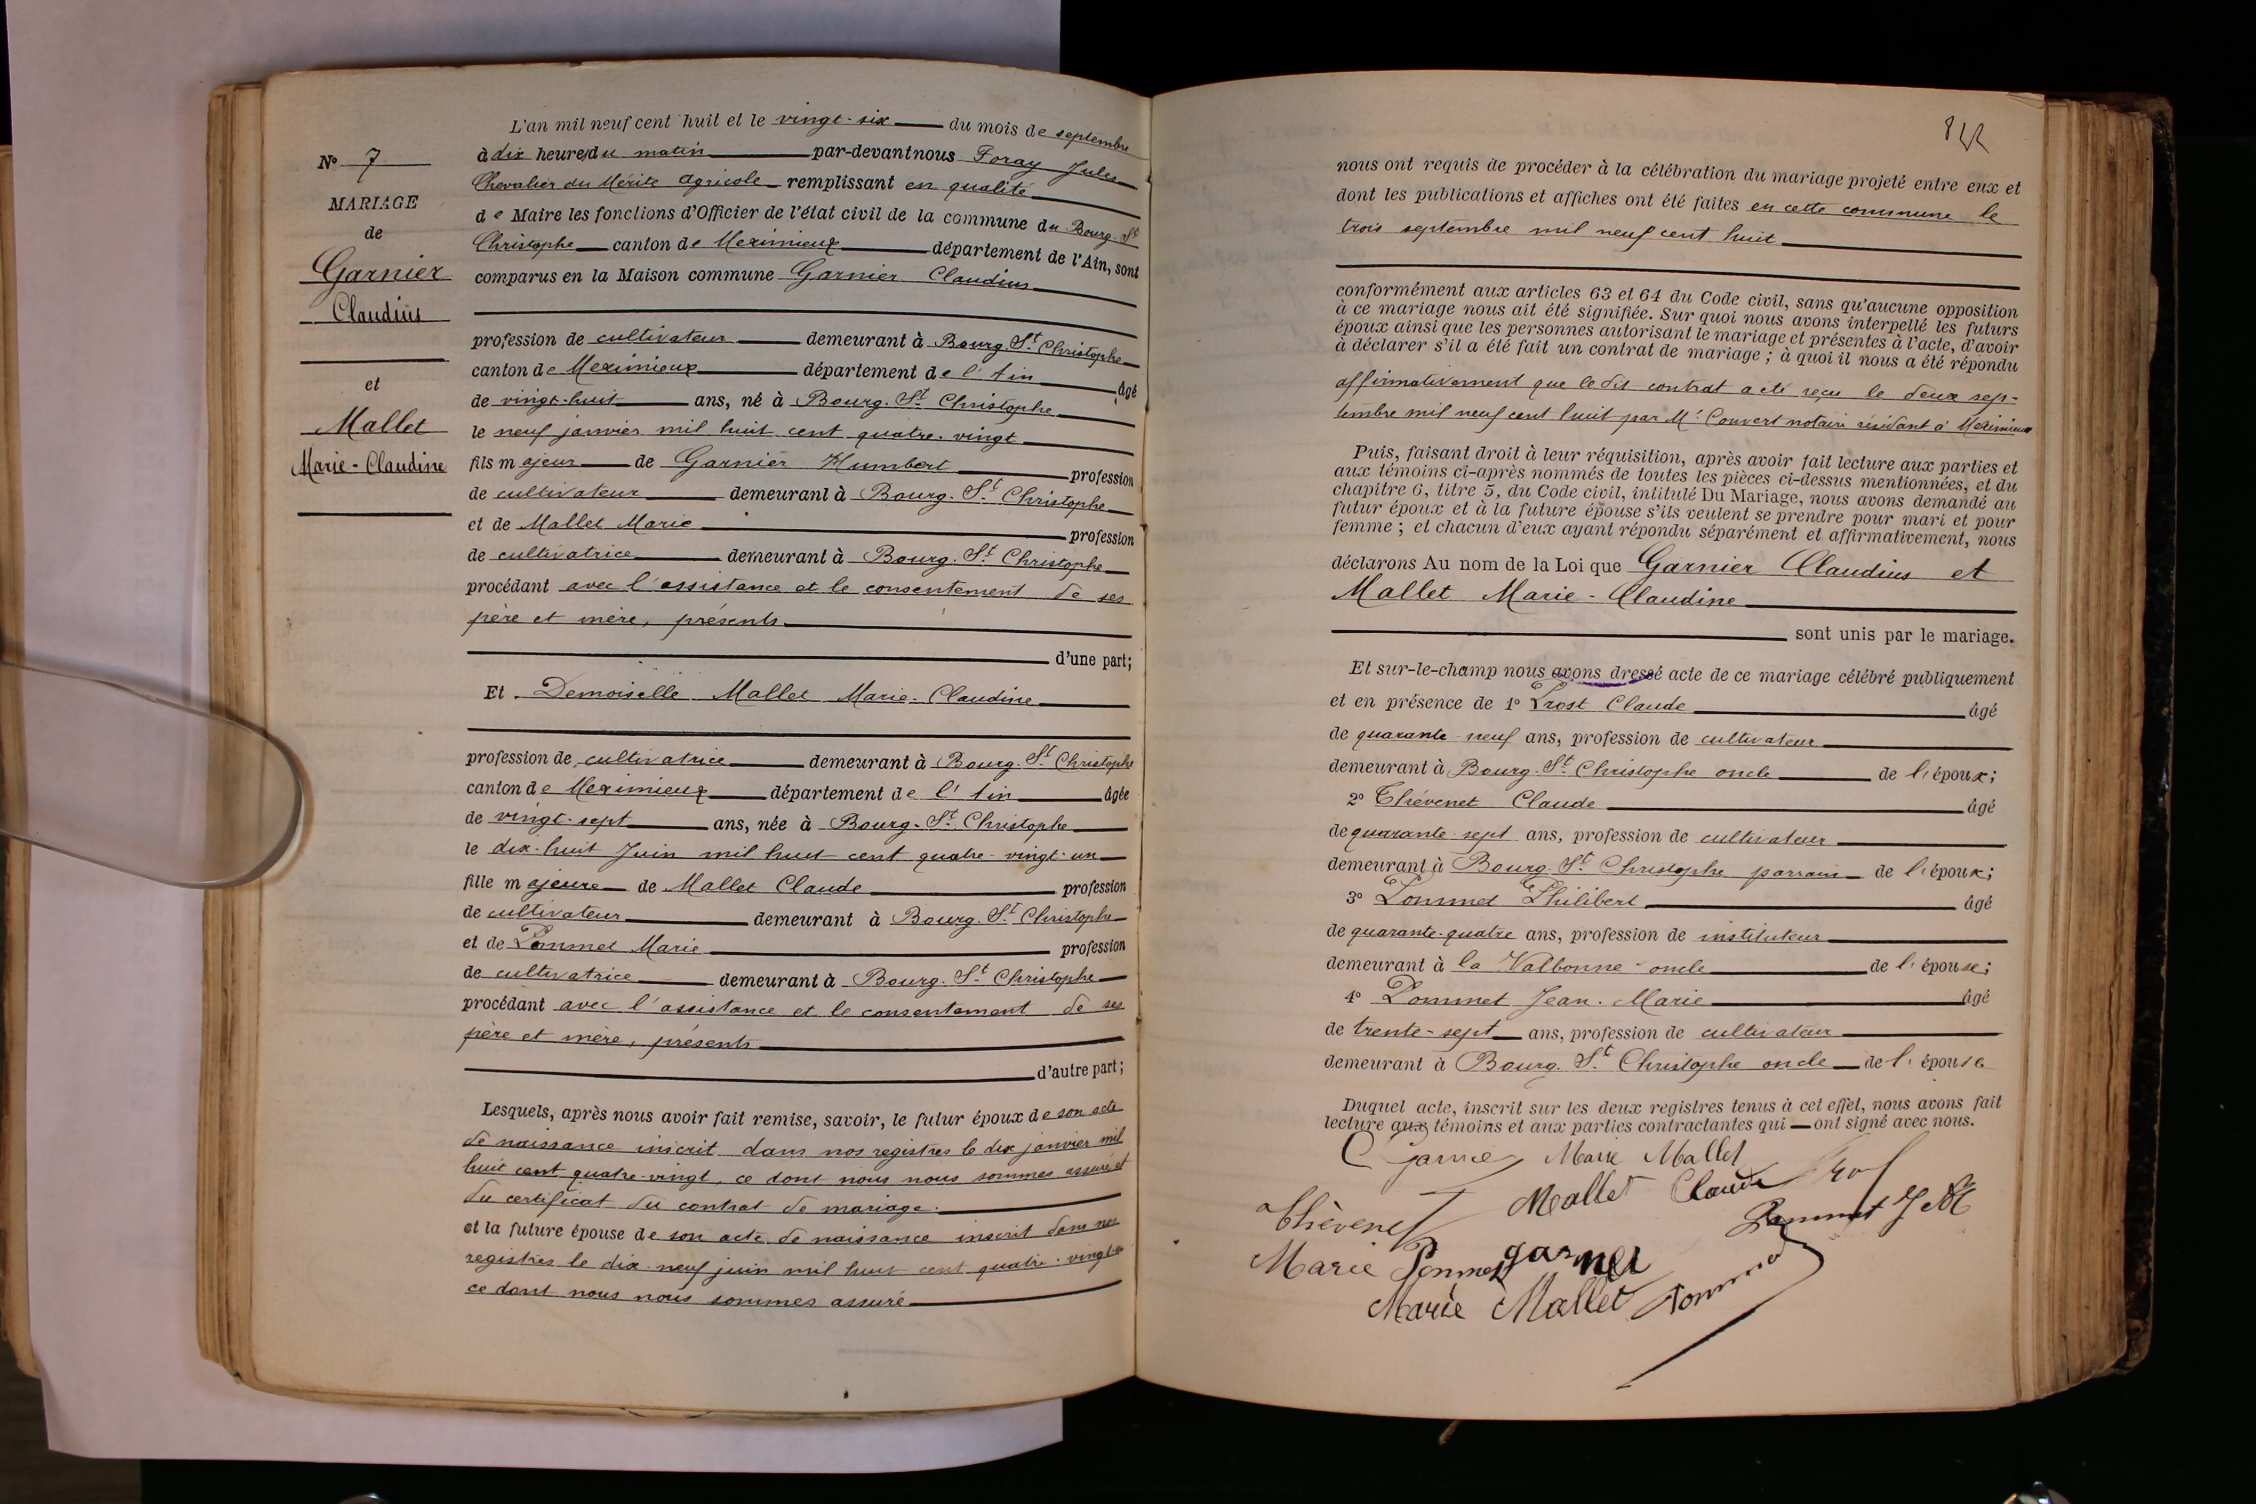 L'an mil neuf cent huit et le vingt-six du mois de septembre
à dix heures du matin par-devant nous Foray Jules
Chevalier du Mérite Agricole remplissant en qualité
de Maire les fonctions d'Officier de l'état civil de la commune du Bourg-St
Christophe canton de Meximieux département de l'Ain, sont
comparus en la Maison commune Garnier Claudius
profession de cultivateur demeurant à Bourg. St. Christophe
canton de Meximieux département de l'Ain âgé
de vingt-huit ans, né à Bourg. St. Christophe
le neuf janvier mil huit cent quatre-vingt
fils majeur de Garnier Humbert profession
de cultivateur demeurant à Bourg. St. Christophe
et de Mallet Marie profession
de cultivatrice demeurant à Bourg. St. Christophe
procédant avec l'assistance et le consentement de ses
père et mère, présents
d'une part;
Et Demoiselle Mallet Marie-Claudine
profession de cultivatrice demeurant à Bourg. St. Christophe
canton de Meximieux département de l'Ain âgée
de vingt-sept ans, née à Bourg. St. Christophe
le dix-huit Juin mil huit cent quatre-vingt-un
fille majeure de Mallet Claude profession
de cultivateur demeurant à Bourg. St. Christophe
et de Pommet Marie profession
de cultivatrice demeurant à Bourg. St. Christophe
procédant avec l'assistance et le consentement de ses
père et mère, présents
d'autre part;
Lesquels, après nous avoir fait remise, savoir, le futur époux de son acte
de naissance inscrit dans nos registres le dix janvier mil
huit cent quatre-vingt, ce dont nous nous sommes assuré et
du certificat du contrat de mariage.
et la future épouse de son acte de naissance inscrit dans nos
registres le dix-neuf juin mil huit cent quatre-vingt-un
ce dont nous nous sommes assuré
No 7
MARIAGE
de
Garnier
Claudius
et
Mallet
Marie-Claudine
nous ont requis de procéder à la célébration du mariage projeté entre eux et
dont les publications et affiches ont été faites en cette commune le
trois septembre mil neuf cent huit
conformément aux articles 63 et 64 du Code civil, sans qu'aucune opposition
à ce mariage nous ait été signifiée. Sur quoi nous avons interpellé les futurs
époux ainsi que les personnes autorisant le mariage et présentes à l'acte, d'avoir
à déclarer s'il a été fait un contrat de mariage; à quoi il nous a été répondu
affirmativement que le dit contrat a été reçu le deux sep-
tembre mil neuf cent huit par Me Convert notaire résidant à Meximieux
Puis, faisant droit à leur réquisition, après avoir fait lecture aux parties et
aux témoins ci-après nommés de toutes les pièces ci-dessus mentionnées, et du
chapitre 6, titre 5, du Code civil, intitulé Du Mariage, nous avons demandé au
futur époux et à la future épouse s'ils veulent se prendre pour mari et pour
femme; et chacun d'eux ayant répondu séparément et affirmativement, nous
déclarons Au nom de la Loi que Garnier Claudius et
Mallet Marie-Claudine
sont unis par le mariage.
Et sur-le-champ nous avons dressé acte de ce mariage célébré publiquement
et en présence de 1o Prost Claude âgé
de quarante-neuf ans, profession de cultivateur
demeurant à Bourg. St. Christophe oncle de l'époux;
2o Thévenet Claude âgé
de quarante-sept ans, profession de cultivateur
demeurant à Bourg. St. Christophe parrain de l'époux;
3o Pommet Philibert âgé
de quarante-quatre ans, profession de instituteur
demeurant à la Valbonne - oncle de l'épouse;
4o Pommet Jean-Marie âgé
de trente-sept ans, profession de cultivateur
demeurant à Bourg. St. Christophe oncle de l'épouse
Duquel acte, inscrit sur les deux registres tenus à cet effet, nous avons fait
lecture aux témoins et aux parties contractantes qui ont signé avec nous.
C Garnier Marie Mallet
Mallet Claude Prost
Thèvenet Pommet J M
Marie Pommet garnier
Marie Mallet Pommet